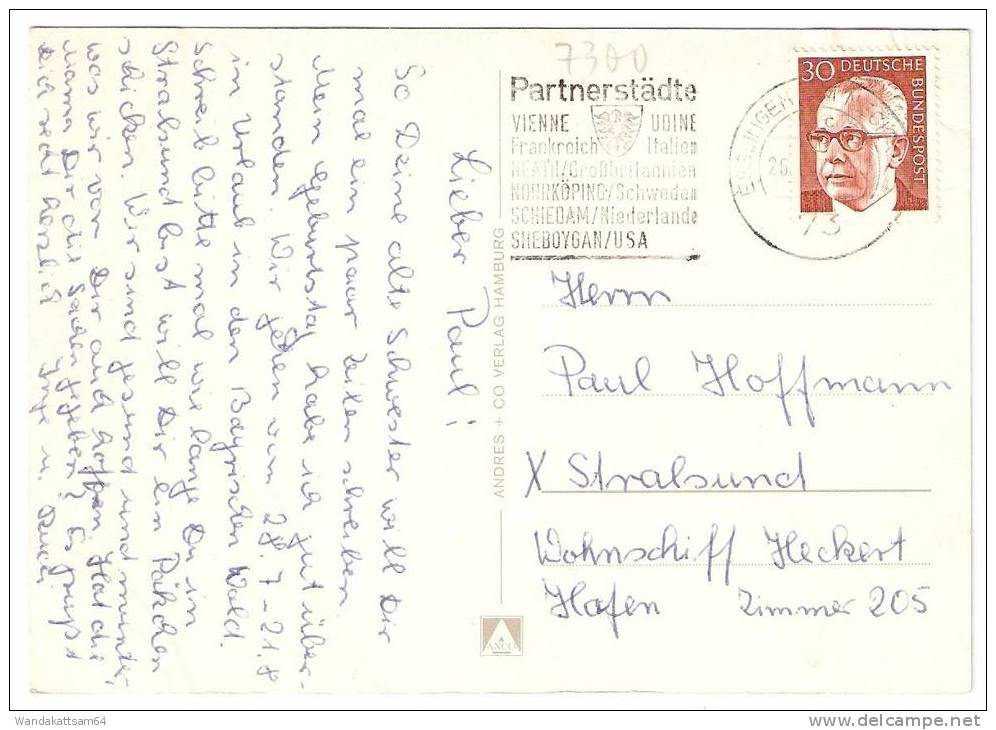 Lieber Paul!
So Deine alte Schwester will Dir
mal ein paar Zeilen schreiben
Mein Geburtstag habe ich gut über-
standen. Wir gehen vom 28.7-21.8
in Urlaub in den Bayrischen Wald.
Schreib bitte mal wie lange Du in
Stralsund bist will Dir ein Päkchen
schicken. Wir sind gesund und munter
was wir von Dir auch hoffen. Hat die
Mama Dir die Sachen gegeben? Es grüßt
Dich recht herzlich Inge u. Rudi
ANDRES + CO VERLAG HAMBURG
ANCO
7300
Partnerstädte
VIENNE UDINE
Frankreich Italien
NEATH/Großbritannien
NORRKÖPING/Schweden
SCHIEDAM/Niederlande
SHEBOYGAN/USA
ESSLINGEN AM
26.
73
30 DEUTSCHE
BUNDESPOST
Herrn
Paul Hoffmann
X Stralsund
Wohnschiff Heckert
Hafen Zimmer 205
Wandakattsam64
delcampe.net